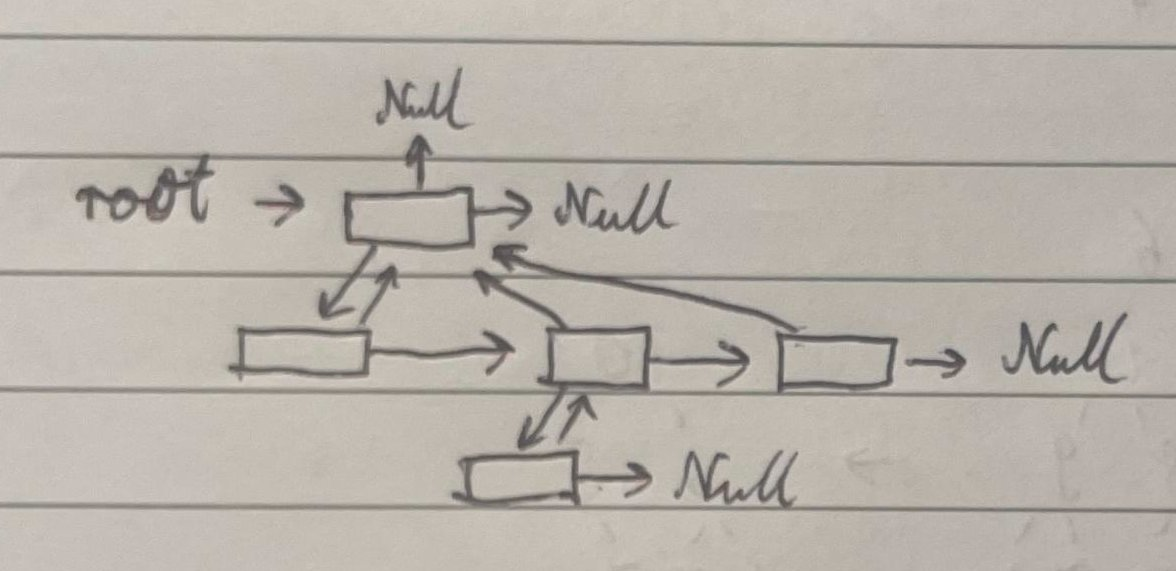 Null
root → Null
Null
Null